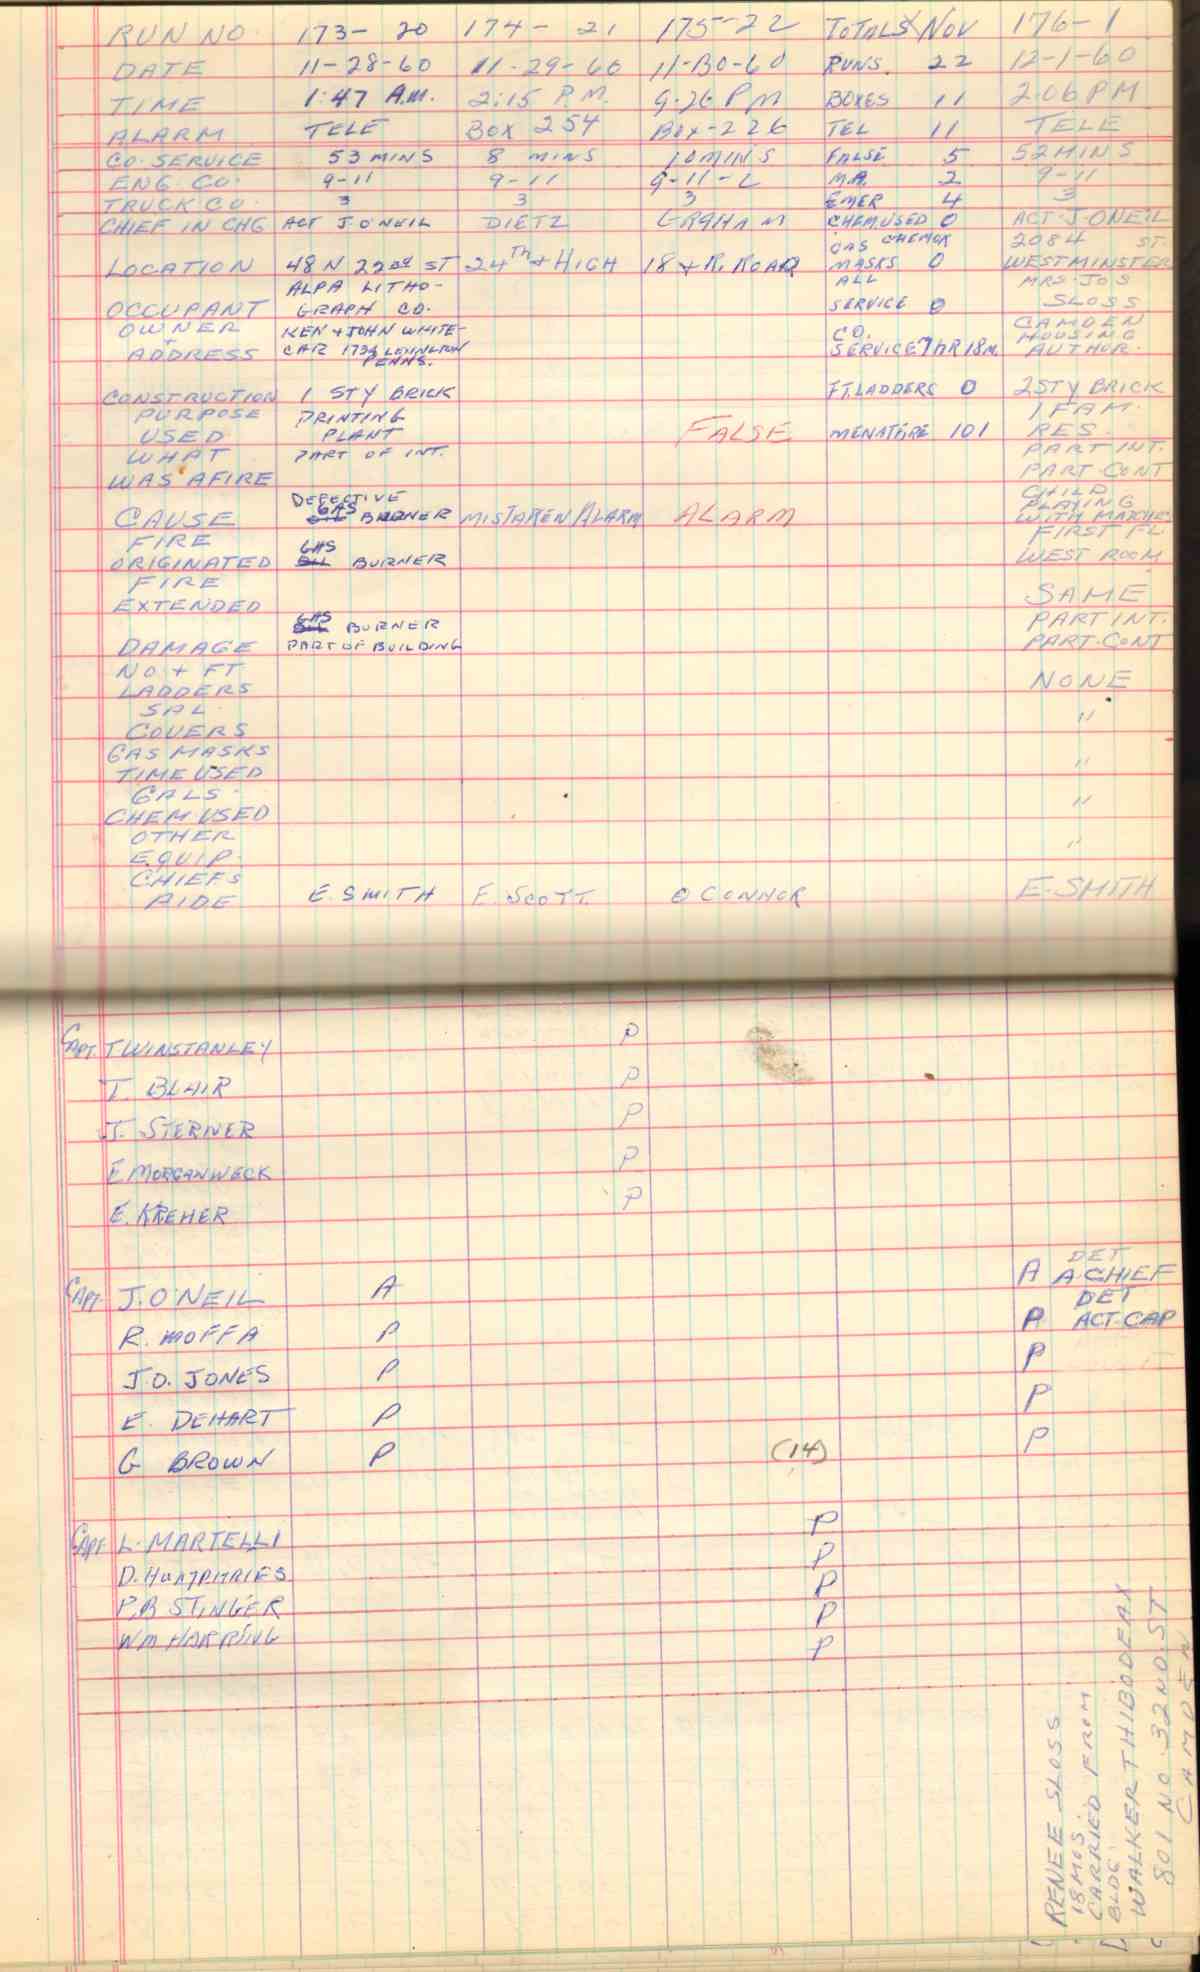 RUN NO. 173- 20 174- 21 175-22 TOTALS NOV 176-1
DATE 11-28-60 11-29-60 11-30-60 RUNS. 22 12-1-60
TIME 1:47 A.M. 2:15 P.M. 9:26 PM BOXES 11 2:06 PM
ALARM TELE BOX 254 BOX-226 TEL 11 TELE
CO. SERVICE 53 MINS 8 MINS 10 MINS FALSE 5 52 MINS
ENG. CO. 9-11 9-11 9-11-2 M.A. 2 9-11
TRUCK CO. 3 3 3 EMER 4 3
CHIEF IN CHG ACT J.O'NEIL DIETZ GRAHAM CHEM.USED 0 ACT-J.ONEIL
GAS CHEMOX 2084 ST.
LOCATION 48 N 22nd ST 24TH + HIGH 18 + R. ROAD MASKS 0 WESTMINSTER
ALPA LITHO- ALL MRS. JOS
OCCUPANT GRAPH CO. SERVICE 0 SLOSS
OWNER KEN + JOHN WHITE- CO. CAMDEN
+ HOUSING
ADDRESS CAR 1734 SERVICE 7 HR 18 M. AUTHOR.
PENNS.
CONSTRUCTION 1 STY BRICK FT. LADDERS 0 2 STY BRICK
PURPOSE PRINTING 1 FAM.
USED PLANT FALSE MENATFIRE 101 RES.
WHAT PART OF INT. PART INT.
WAS AFIRE PART-CONT
DEFECTIVE CHILD
GAS PLAYING
CAUSE OIL BURNER MISTAKEN ALARM ALARM WITH MATCHES
FIRE GAS FIRST FL
ORIGINATED OIL BURNER WEST ROOM
FIRE SAME
EXTENDED
GAS
OIL BURNER PART INT.
DAMAGE PART OF BUILDING PART-CONT
NO + FT
LADDERS NONE
SAL
COVERS "
GAS MASKS
TIME USED "
GALS
CHEM USED "
OTHER
EQUIP. "
CHIEFS
AIDE E. SMITH E. SCOTT. O CONNOR E. SMITH
CAPT. T WINSTANLEY P
T. BLAIR P
J. STERNER P
E MORGANWECK P
E. KREHER P
DET
CAPT. J. O'NEIL A A A-CHIEF
DET
R. MOFFA P P ACT. CAP
J.O. JONES P P
E. DEHART P P
G BROWN P (14) P
CAPT. L. MARTELLI P
D. HUMPHRIES P
P.B STINGER P
WM HARRING P
P
RENEE SLOSS
18 MOS.
CARRIED FROM
BLDG.
WALKER THIBODEAX
801 NO. 32ND. ST
CAMDEN